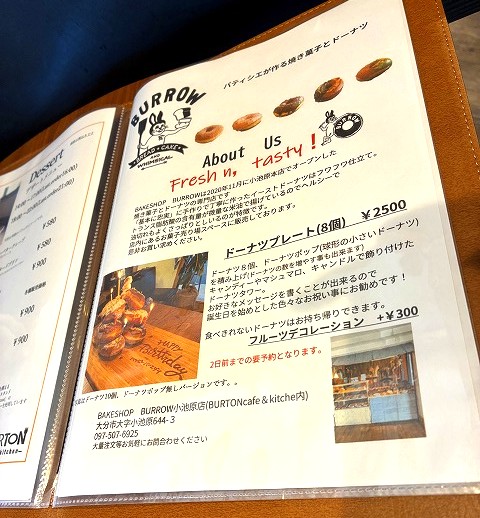 パティシエが作る焼き菓子とドーナツ
BURROW
BREAD & CAKE
WHIMSICAL
About Us
Fresh n, tasty!
BAKESHOP BURROWは2020年11月に小池原本店でオープンした
焼き菓子とドーナツの専門店です
「基本に忠実」に手作りで丁寧に作ったイーストドーナツはフワフワ仕立て。
トランス脂肪酸の含有量が微量な米油で揚げているのでヘルシーで
油切れもよくさっぱりとしいるのが特徴です。
店内にあるお菓子売り場スペースに販売しております。
是非お買い求めください。
ドーナツプレート(8個) ¥2500
ドーナツ８個、ドーナツポップ(球形の小さいドーナツ)
を積み上げ(ドーナツの数を増やす事も出来ます)
キャンディーやマシュマロ、キャンドルで飾り付けた
ドーナツタワー。
お好きなメッセージを書くことが出来るので
誕生日を始めとした色々なお祝い事にお勧めです！
食べきれないドーナツはお持ち帰りできます。
フルーツデコレーション +¥300
2日前までの要予約となります。
HAPPY
Birthday
はドーナツ10個、ドーナツポップ無しバージョンです。。
BAKESHOP BURROW小池原店(BURTONcafe＆kitche内)
大分市大字小池原644-３
097-507-6925
大量注文等お気軽にお問合わせください
Dessert
¥580
¥580
¥900
¥900
RTON
kitchen